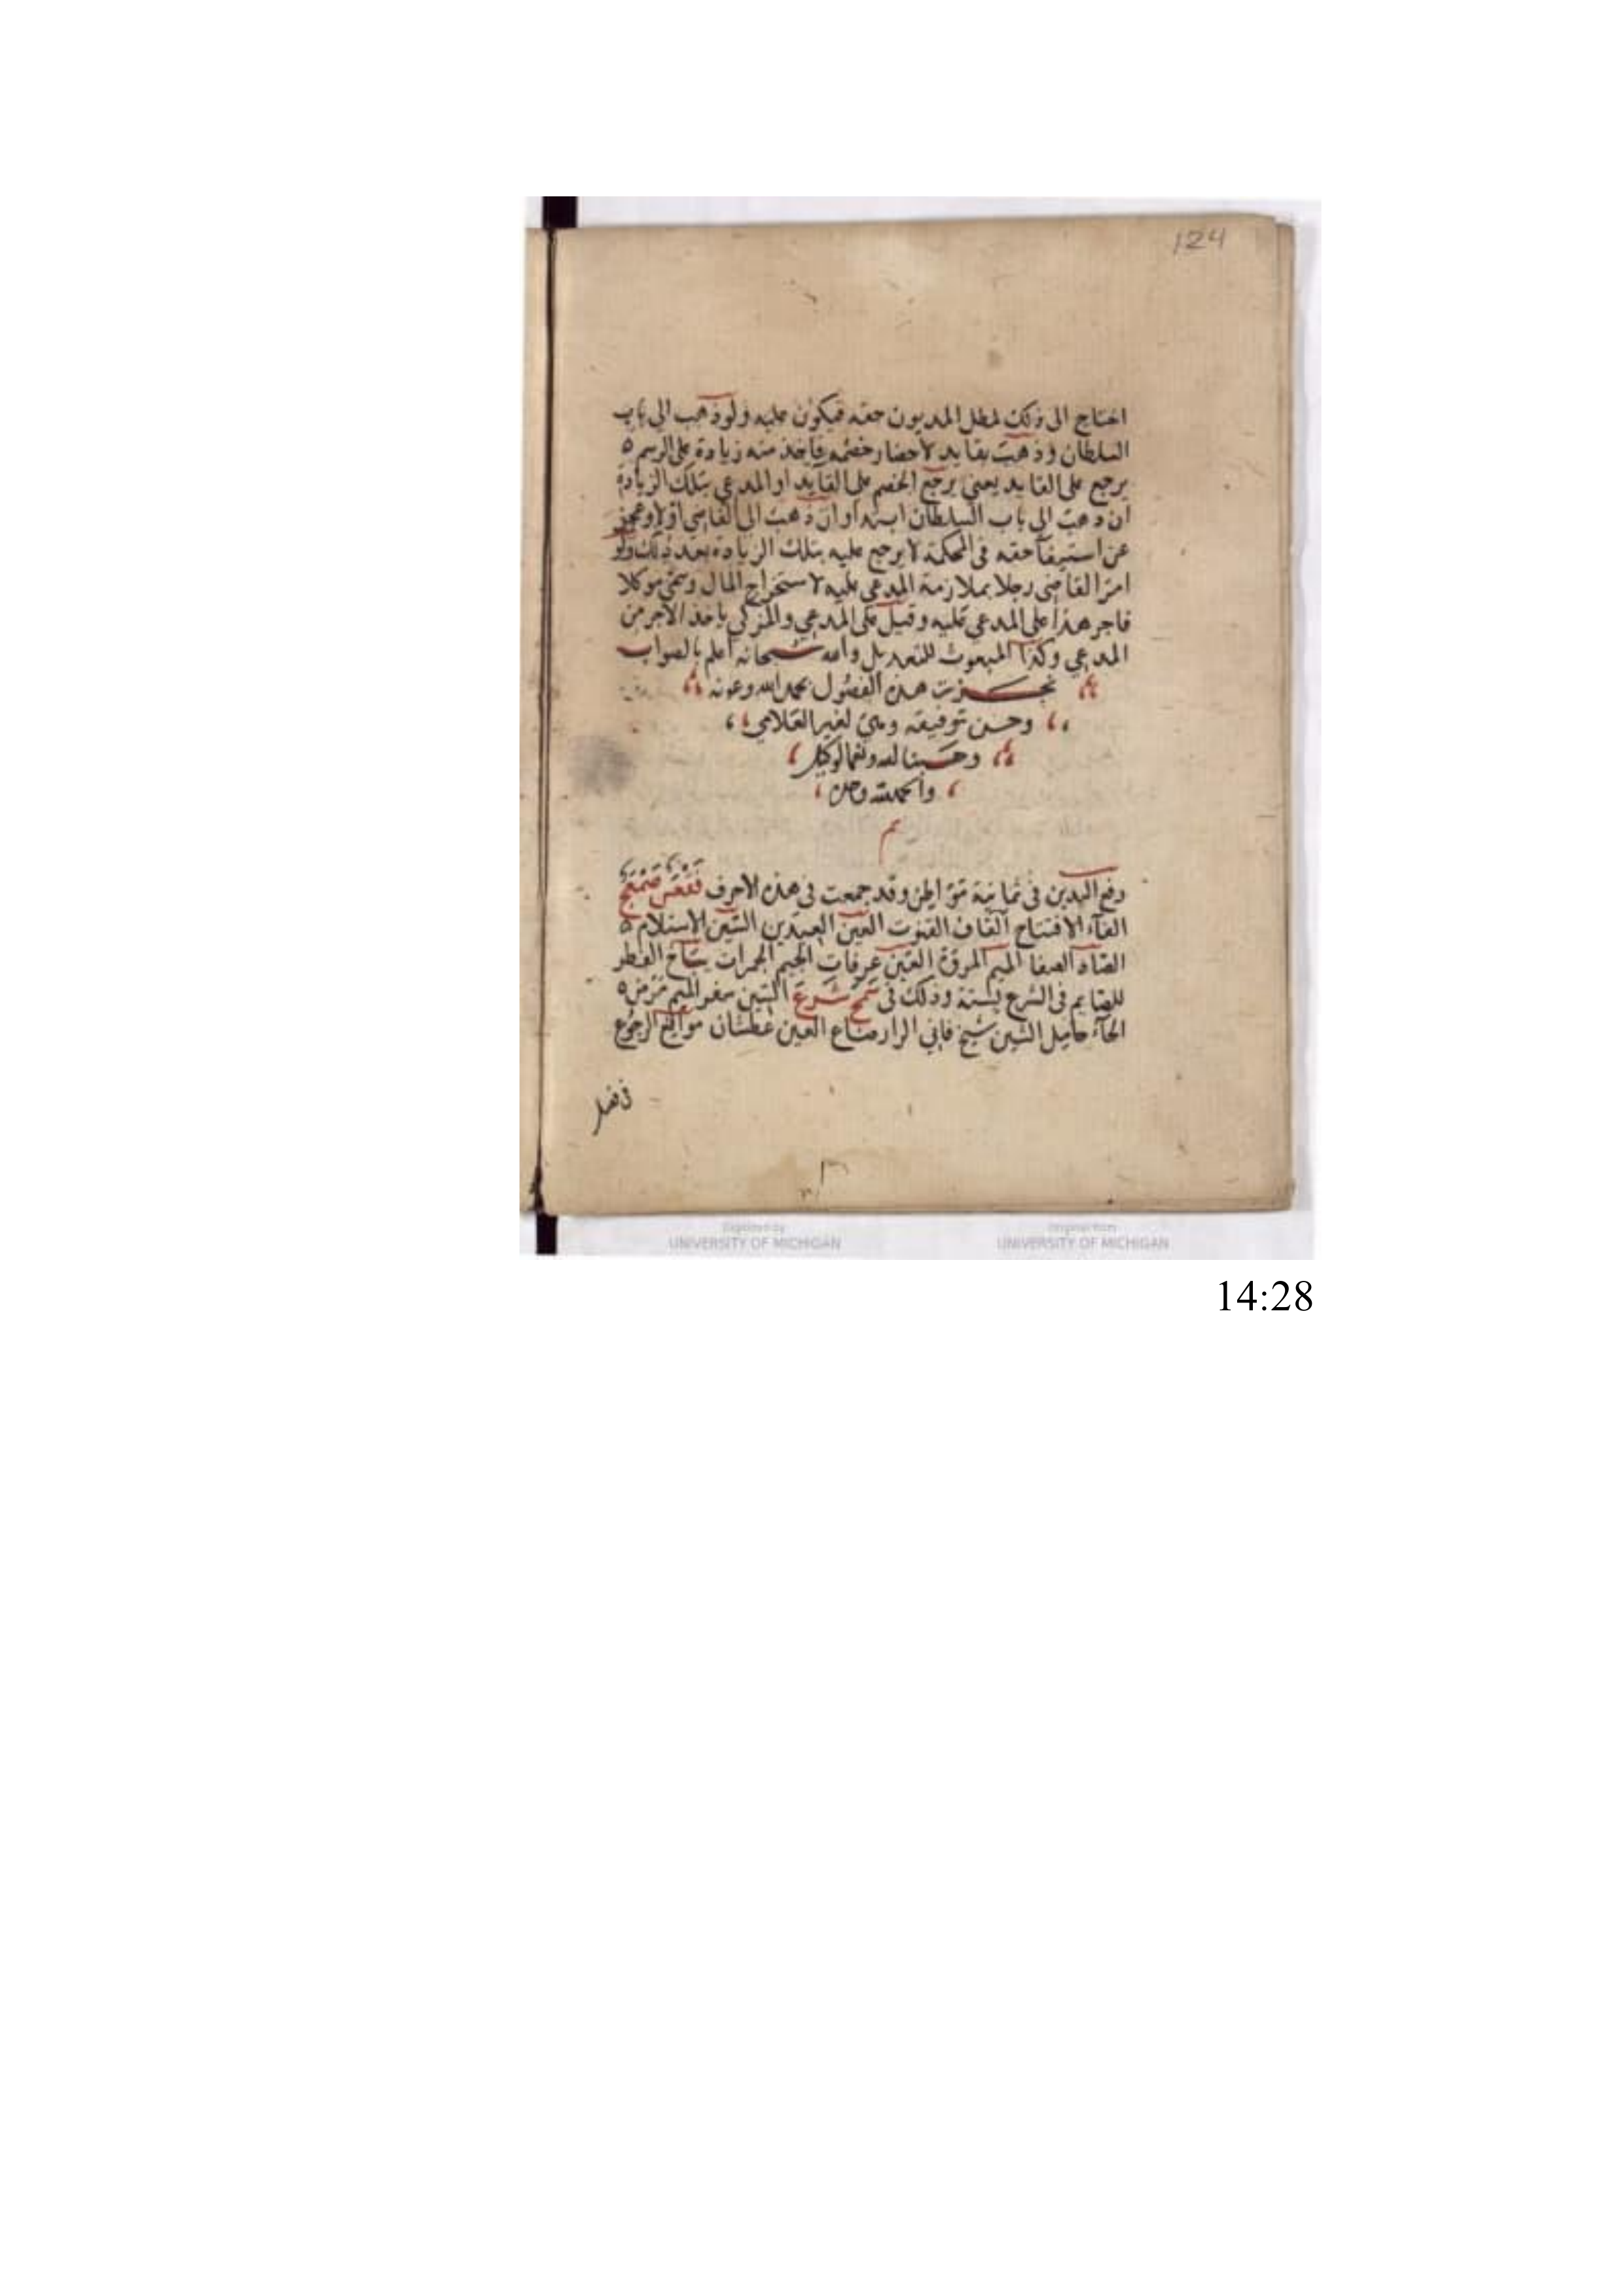 124
احتاج الى ذلك لمطل المديون حقه فيكون عليه ولو ذهب الى باب
السلطان وذهب بقايد لاحضار خصمه فاخذ منه زيادة على الرسم
يرجع على القايد يعني يرجع الخصم على القايد او المدعي بتلك الزيادة
ان ذهب الى باب السلطان ابتداء وان ذهب الى القاضي اولا وعجز
عن استيفآ حقه في المحكمة لا يرجع عليه بتلك الزيادة بعد ذلك ولو
امر القاضي رجلا بملازمة المدعي عليه لاستخراج المال وسمي موكلا
فاجر هذا على المدعي عليه وقيل على المدعي والمزكي ياخذ الاجر من
المدعي وكذا المبعوث للتعديل والله سبحانه اعلم بالصواب
نجزت هذه الفصول بحمد الله وعونه
وحسن توفيقه لغير
وحسبنا الله ونعم الوكيل
والحمد لله وحده
م
رفع اليدين في ثمانية مواطن وقد جمعت في هذه الاحرف فقعس صمعج
الفآء الافتتاح القاف القنوت العين العيدين السين الاستلام
الصاد الصفا الميم المروة العين عرفات الجيم الجمرات يباح الفطر
للصايم في الشرع بستة وذلك في سمح شرع السين سفر الميم مرض
الحآء حامل الشين شيخ فاني الرا رضاع العين عطشان مواقع الرجوع
في فصل
Digitized by
UNIVERSITY OF MICHIGAN
Original from
UNIVERSITY OF MICHIGAN
14:28